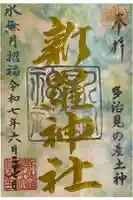 奉拝
多治見の産土神
新羅神社
水無月招福
令和七年六月